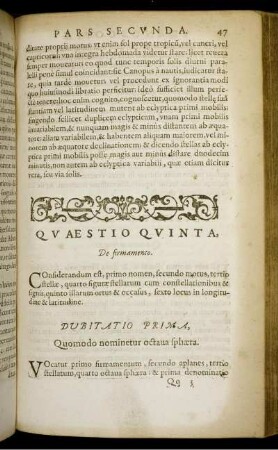 PARS SECVNDA. 47
ditate proprii motus vt enim sol prope tropicū, vel cancri, vel
capricorni vna integra hebdomada videtur stare: licet reuera
semper moueatur eo quod tunc temporis solis diurni paral-
leli pene simul coincidant: sic Canopus à nautis, iudicatur sta-
re, quia tarde mouetur vel procedunt ex ignorantia modi
quo huiusmodi libratio perficitur ideò sufficiet illum perfe-
ctè
stantiam vel latitudinem mutet ab ecliptica primi mobilis:
ingendo scilicet duplicem eclypticum, vnam primi mobilis
inuariabilem, & nunquam magis & minus distantem ab æqua-
tore, aliam variabilem, & habentem aliquam maiorem, vel mi-
norem ab æquatore declinationem: & dicendo stellas ab ecly-
ptica primi mobilis posse magis aut minus distare quodemcin
nautis, non autem ab ecliptica variabili, quæ etiam dicitur
vera, seu via solis.
QVAESTIO QVINTA,
De firmamento.
Considerandum est, primo nomen, secundo motus, tertio
stellæ, quarto figuræ stellarum cum constellationibus &
signis, quinto illarum ortus & occasus, sexto locus in longitu-
dine & latitudine.
DVBITATIO PRIMA,
Quomodo nominetur octaua sphæra.
Vocatur primo firmamentum, secundo aplanes, tertio
stellatum, quarto octaua sphæra: & prima denominatio